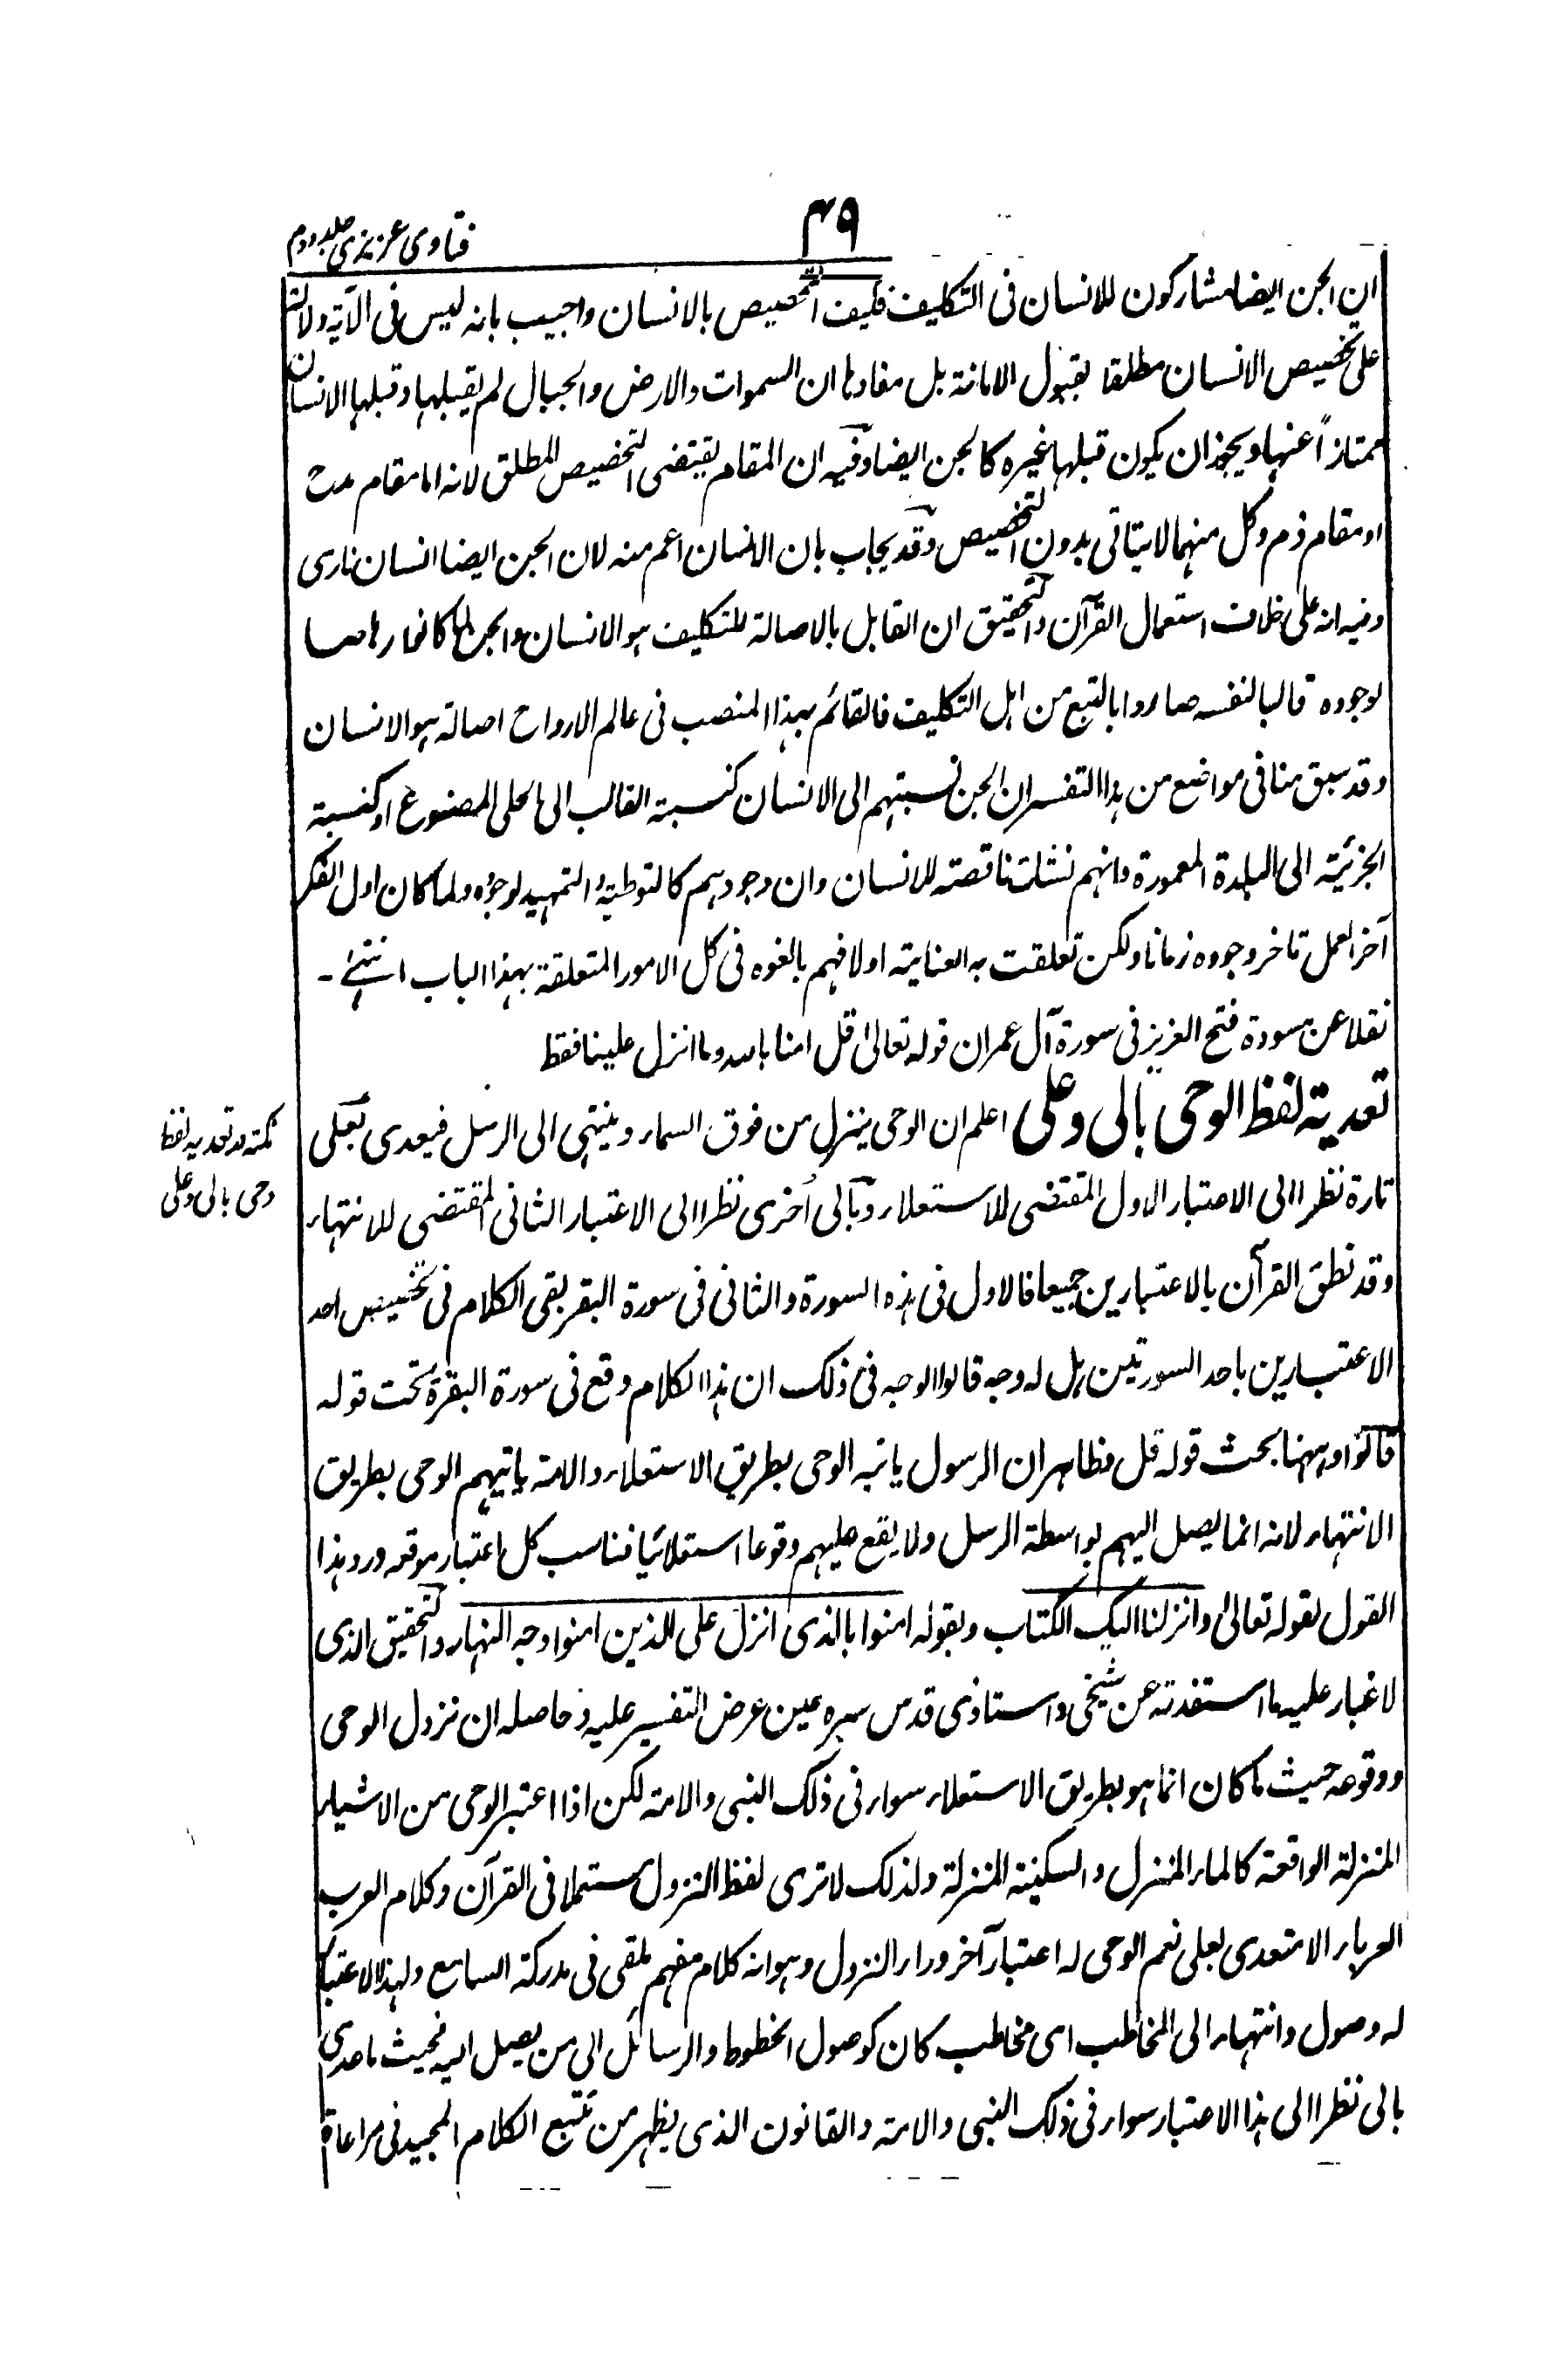 فتاوی عزیزی جلد دوم
۴۹
ان الجن ایضا مشارکون للانسان فی التکلیف فکیف التخصیص بالانسان واجیب بانه لیس فی الآیة دلالة
علی تخصیص الانسان مطلقا بقبول الامانة بل مفادها ان السموات والارض والجبال لم یقبلها وقبلها الانسان
ممتازاً عنها ویجوز ان یکون قبلها غیره کالجن ایضا وفیه ان المقام یقتضی التخصیص المطلق لانه اما مقام مدح
او مقام ذم وکل منهما لا یتاتی بدون التخصیص وقد یجاب بان الانسان اعم منه لان الجن ایضا انسان ناری
وفیه انه علی خلاف استعمال القرآن والتحقیق ان القابل بالاصالة للتکلیف هو الانسان والجن لما کانوا رهاصا
لوجوده قالبا لنفسه صاروا بالتبع من اهل التکلیف فالقائم بهذا المنصب فی عالم الارواح اصالة هو الانسان
وقد سبق منا فی مواضع من هذا التفسیر ان الجن نسبتهم الی الانسان کنسبة القالب الی الحلی المصنوع او کنسبة
الجزئیة الی البلدة المعمورة وانهم نشات ناقصة للانسان وان وجودهم کالتوطیة والتمهید لوجوده ولما کان اول الفکر
آخر العمل تاخر وجوده زمانا ولکن تعلقت به العنایة اولا فهم بالغوه فی کل الامور المتعلقة بهذا الباب انتهی ۔
نقلا عن مسودة فتح العزیز فی سورة آل عمران قوله تعالیٰ قل امنا بالله وما انزل علینا فقط
تعدیة لفظ الوحی بالی وعلی اعلم ان الوحی ینزل من فوق السماء وینتهی الی الرسل فیعدی بعلی
نکته در تعدیه لفظ
وحی بالی وعلی
تارة نظرا الی الاعتبار الاول المقتضی للاستعلاء وبالی اُخری نظرا الی الاعتبار الثانی المقتضی للانتهاء
وقد نطق القرآن بالاعتبارین جمیعا فالاول فی هذه السورة والثانی فی سورة البقر بقی الکلام فی تخصیص احد
الاعتبارین باحد السورتین هل له وجه قالوا الوجه فی ذلک ان هذا الکلام وقع فی سورة البقرة تحت قوله
قالوا وههنا بحث قوله قل فظاهر ان الرسول یاتیه الوحی بطریق الاستعلاء والامة یاتیهم الوحی بطریق
الانتهاء لانه انما یصل الیهم بواسطة الرسل ولا یقع علیهم وقوعا استعلائیا فناسب کل اعتبار موقعه ورد هذا
القول بقوله تعالیٰ وانزلنا الیک الکتاب وبقوله امنوا بالذی انزل علی الذین امنوا وجه النهار والتحقیق الذی
لا غبار علیه ما استفدته عن شیخی واستاذی قدس سره حین عرض التفسیر علیه وحاصله ان نزول الوحی
ووقوعه حیث ما کان انما هو بطریق الاستعلاء سواء فی ذلک النبی والامة لکن اذا اعتبر الوحی من الاشیاء
المنزلة الواقعة کالماء المنزل والسکینة المنزلة ولذلک لا تری لفظ النزول مستعملا فی القرآن وکلام العرب
العرباء الا متعدی بعلی نعم الوحی له اعتبار آخر وراء النزول وهو انه کلام مفهم ملقی فی مدرکة السامع ولهذا الاعتبار
له وصول وانتهاء الی المخاطب ای مخاطب کان کوصول الخطوط والرسائل الی من یصل الیه فحیث ما عدی
بالی نظرا الی هذا الاعتبار سواء فی ذلک النبی والامة والقانون الذی یظهر من تتبع الکلام المجید فی مراعاة